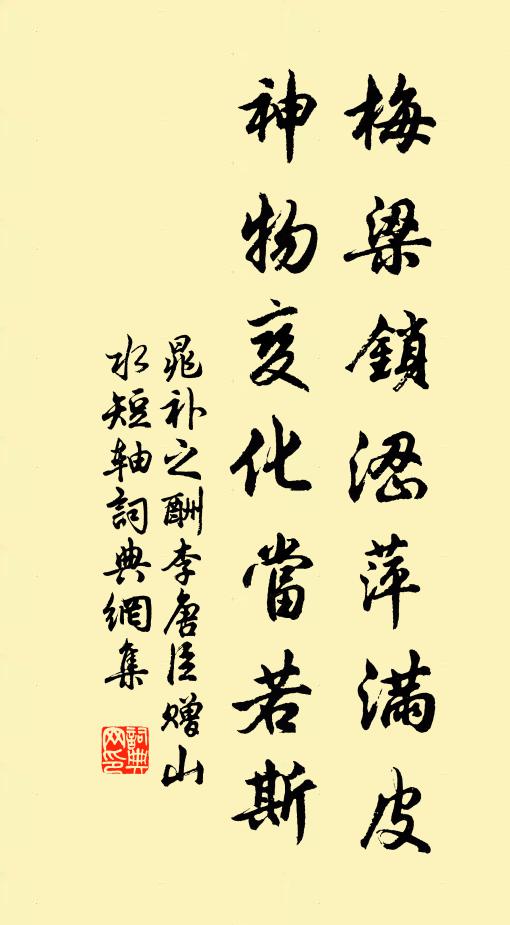 梅梁鎖澀萍滿皮
神物變化當若斯
晁补之酬李唐臣贈山
水短轴詞典網集
詞典
网印